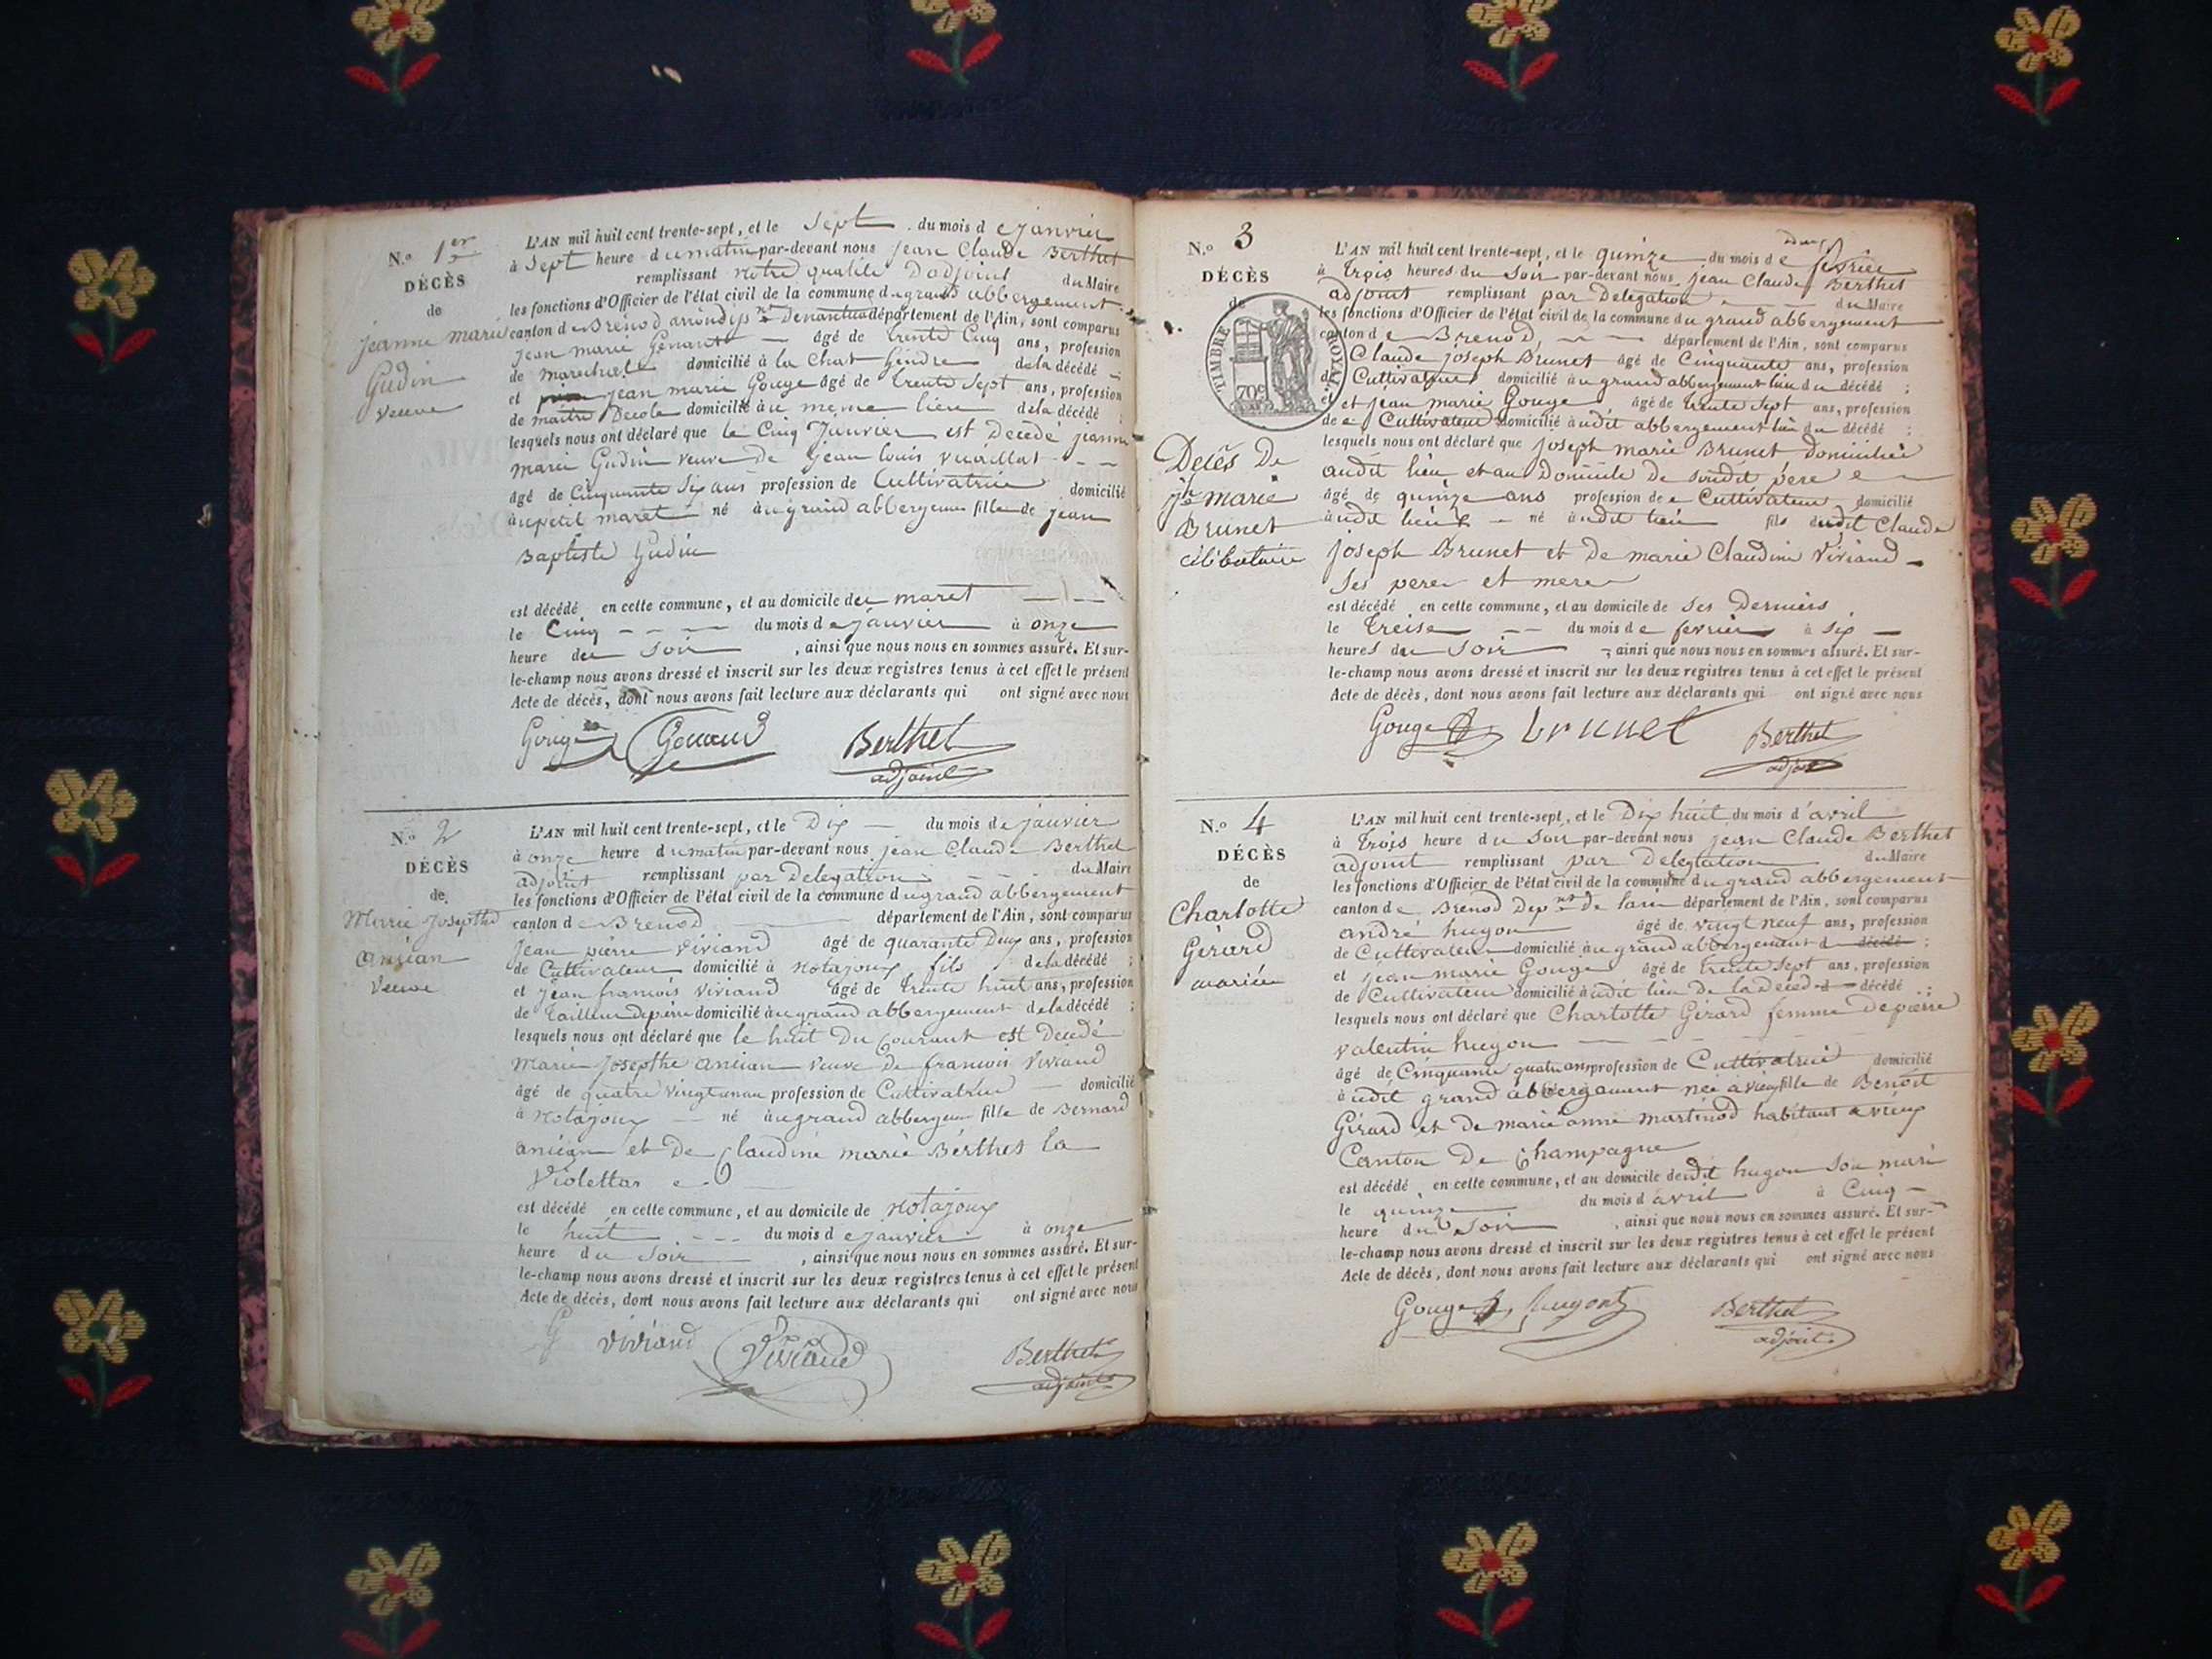 N.º 1er
DÉCÈS
de
jeanne marie
Gudin
veuve
L'AN mil huit cent trente-sept, et le sept du mois de janvier
à sept heure du matin par-devant nous jean Claude Berthet
remplissant notre qualité D'adjoint du Maire
les fonctions d'Officier de l'état civil de la commune du grand abbergement
canton de Brénod arrondiss nt De nantua département de l'Ain, sont comparus
jean marie Genand âgé de trente Cinq ans, profession
de marechal domicilié à la Chat de la décédé
et jean marie Gouge âgé de trente sept ans, profession
de maître Decole domicilié au meme lieu de la décédé ;
lesquels nous ont déclaré que le Cinq Janvier est Decedé jeanne
marie Gudin veuve De jean louis vuaillat
âgé de Cinquante Six ans profession de Cultivatrice domicilié
au petit maret né au grand abbergement fille de jean
Baptiste Gudin
est décédé en cette commune, et au domicile du maret
le Cinq du mois de janvier à onze
heure du Soir , ainsi que nous nous en sommes assuré. Et sur-
le-champ nous avons dressé et inscrit sur les deux registres tenus à cet effet le présent
Acte de décès, dont nous avons fait lecture aux déclarants qui ont signé avec nous
Gouge Genand Berthet
adjoint
N.º 2
DÉCÈS
de
Marie Josephte
ancian
Veuve
L'AN mil huit cent trente-sept, et le Dix du mois de janvier
à onze heure du matin par-devant nous jean Claude Berthet
adjoint remplissant par Delegation du Maire
les fonctions d'Officier de l'état civil de la commune du grand abbergement
canton de Brenod département de l'Ain, sont comparus
Jean pierre Viviand âgé de quarante Deux ans, profession
de Cultivateur domicilié à Notajoux fils de la décédé ;
et jean francois Viviand âgé de trente huit ans, profession
de Tailleur De pierre domicilié au grand abbergement de la décédé ;
lesquels nous ont déclaré que le huit Du Courant est Decedé
Marie Josephte ancian veuve De francois Viviand
âgé de quatre vingt un an profession de Cultivatrice domicilié
à Notajoux né au grand abbergem fille de Bernard
ancian et De Claudine marie Berthet la
Violettas
est décédé en cette commune, et au domicile de Notajoux
le huit du mois de janvier à onze
heure du Soir , ainsi que nous nous en sommes assuré. Et sur-
le-champ nous avons dressé et inscrit sur les deux registres tenus à cet effet le présent
Acte de décès, dont nous avons fait lecture aux déclarants qui ont signé avec nous
viviand Viviand Berthet
adjoint
N.º 3
DÉCÈS
de
TIMBRE ROYAL
70c
Decès De
jh marie
Brunet
célibataire
L'AN mil huit cent trente-sept, et le quinze du mois de fevrier
à trois heures du Soir par-devant nous jean Claude Berthet
adjoint remplissant par Delegation du Maire
les fonctions d'Officier de l'état civil de la commune du grand abbergement
canton de Brenod département de l'Ain, sont comparus
Claude joseph Brunet âgé de Cinquante ans, profession
de Cultivateur domicilié au grand abbergement lieu du décédé ;
et et jean marie Gouge âgé de trente sept ans, profession
de e Cultivateur domicilié audit abbergement lieu du décédé ;
lesquels nous ont déclaré que joseph marie Brunet domicilié
audit lieu et au Domicile De sondit père
âgé de quinze ans profession de e Cultivateur domicilié
audit lieu né audit lieu fils dudit Claude
joseph Brunet et De marie Claudine Viviand
Ses pere et mere
est décédé en cette commune, et au domicile de Ses Derniers
le treise du mois de fevrier à six
heures du Soir , ainsi que nous nous en sommes assuré. Et sur-
le-champ nous avons dressé et inscrit sur les deux registres tenus à cet effet le présent
Acte de décès, dont nous avons fait lecture aux déclarants qui ont signé avec nous
Gouge brunet Berthet
adjoint
N.º 4
DÉCÈS
de
Charlotte
Gérard
mariée
L'AN mil huit cent trente-sept, et le Dix huit du mois d'avril
à trois heure du Soir par-devant nous jean Claude Berthet
adjoint remplissant par Delegation du Maire
les fonctions d'Officier de l'état civil de la commune du grand abbergement
canton de Brenod Dep nt de lain département de l'Ain, sont comparus
andré hugon âgé de vingt neuf ans, profession
de Cultivateur domicilié au grand abbergement d décédé ;
et jean marie Gouge âgé de trente sept ans, profession
de Cultivateur domicilié audit lieu De la Deced d décédé ;
lesquels nous ont déclaré que Charlotte Gérard femme De pierre
valentin hugon
âgé de Cinquante quatre ans profession de Cultivatrice domicilié
audit grand abbergement née a vieu fille de Benoit
Gérard et De marie anne martinod habitant a vieux
Canton De Champagne
est décédé en cette commune, et au domicile dudit hugon Son mari
le quinze du mois d avril à Cinq
heure du Soir , ainsi que nous nous en sommes assuré. Et sur-
le-champ nous avons dressé et inscrit sur les deux registres tenus à cet effet le présent
Acte de décès, dont nous avons fait lecture aux déclarants qui ont signé avec nous
Gouge hugon Berthet
adjoint